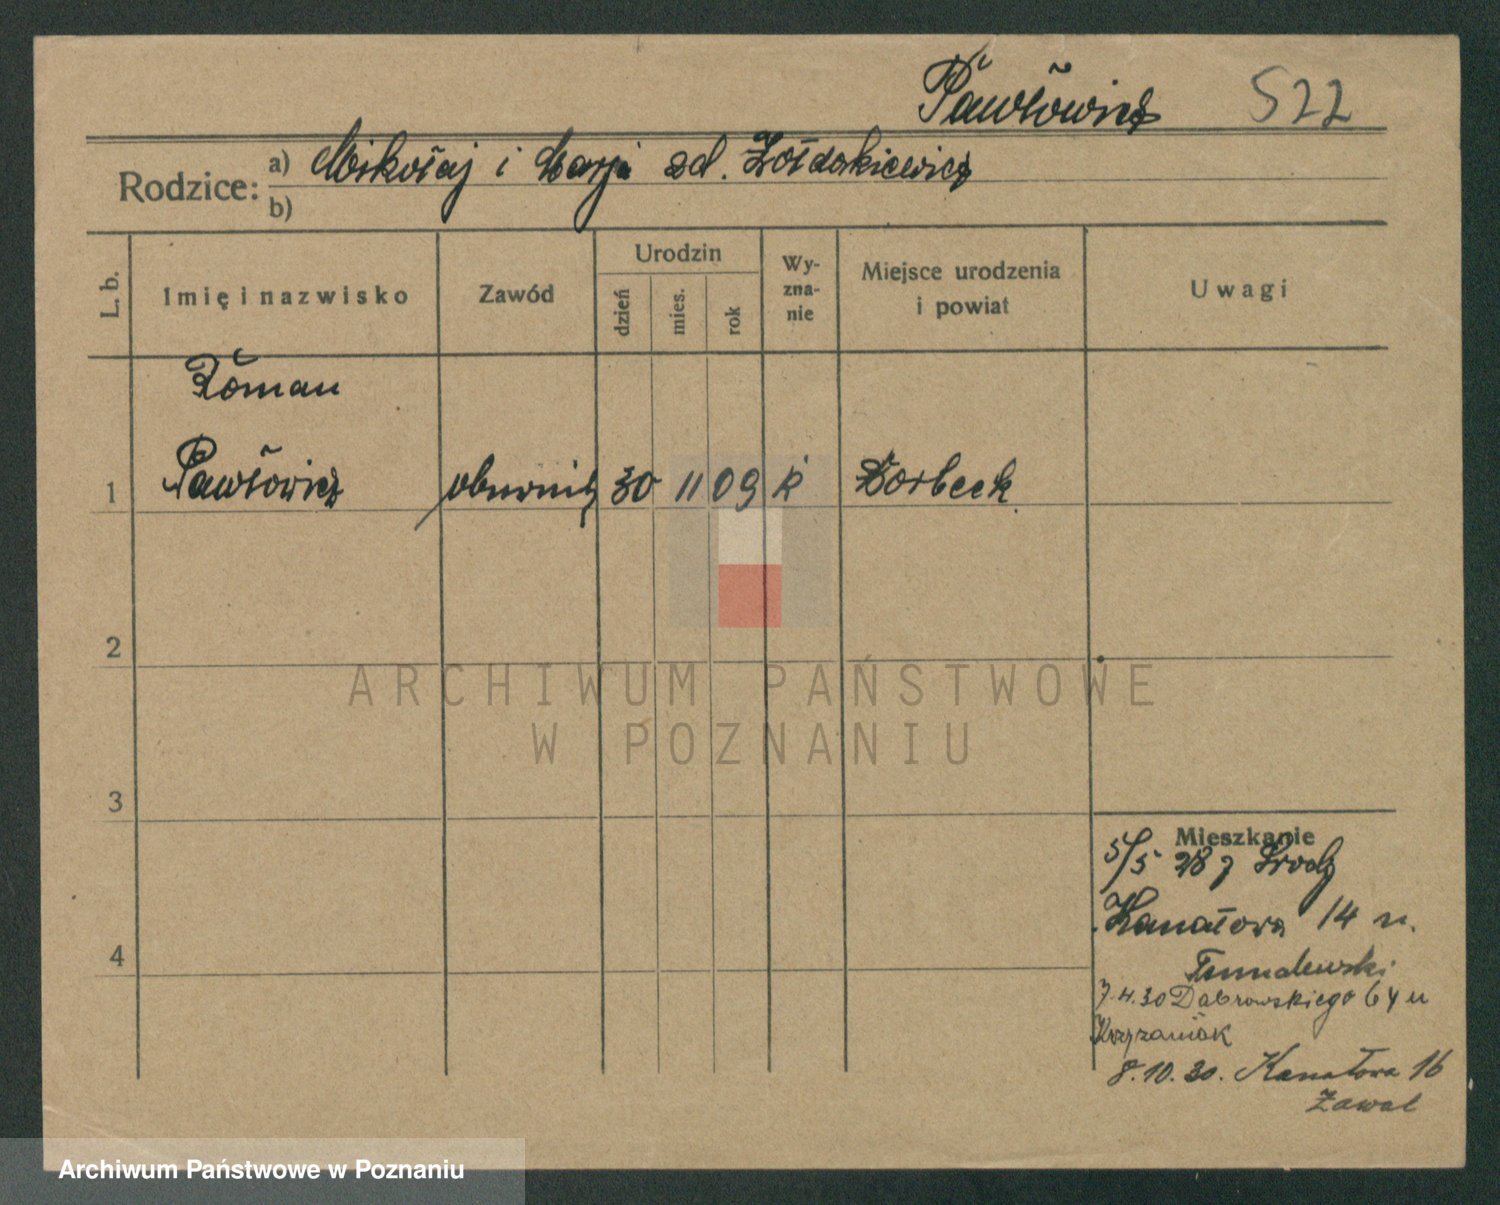 Pawłowicz 522
Rodzice: a) Mikołaj i Marja zd. Żołdakiewicz
b)
L. b. Imię i nazwisko Zawód Urodzin dzień mies. rok Wy-zna-nie Miejsce urodzenia i powiat Uwagi
Roman
1 Pawłowicz obuwnik 30 11 09 k Borbeck
2
3
4
Mieszkanie
5/5 28 z Środy
Kanałowa 14 u.
7.4.30 Dabrowskiego 64 u
Krzyżaniak
8.10.30. Kanałowa 16
Zawal
ARCHIWUM PAŃSTWOWE
W POZNANIU
Archiwum Państwowe w Poznaniu